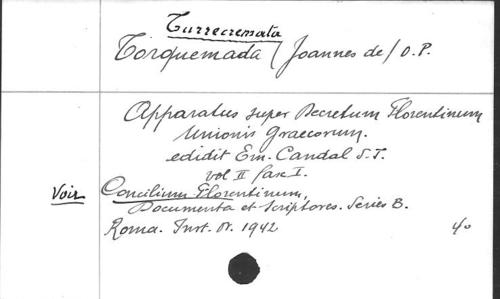 Turrecremata
Torquemada / Joannes de / O.P.
Apparatus super Decretum Florentinum
Unionis Graecorum.
edidit Em. Candal S.I.
vol II fasc I.
Voir Concilium Florentinum,
Documenta et Scriptores. Series B.
Roma. Inst. Or. 1942 4o